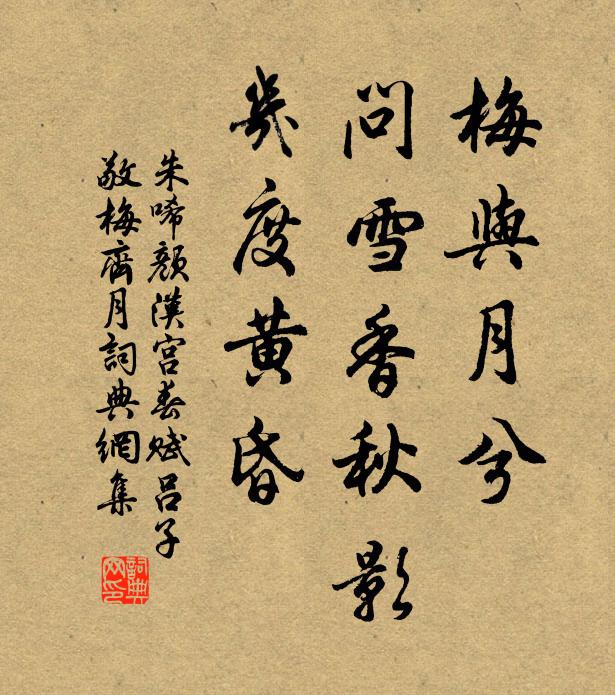 梅與月兮
問雪香秋影
幾度黃昏
朱唏顏漢宮春賦呂子
敬梅齋月詞典網集
詞典網印